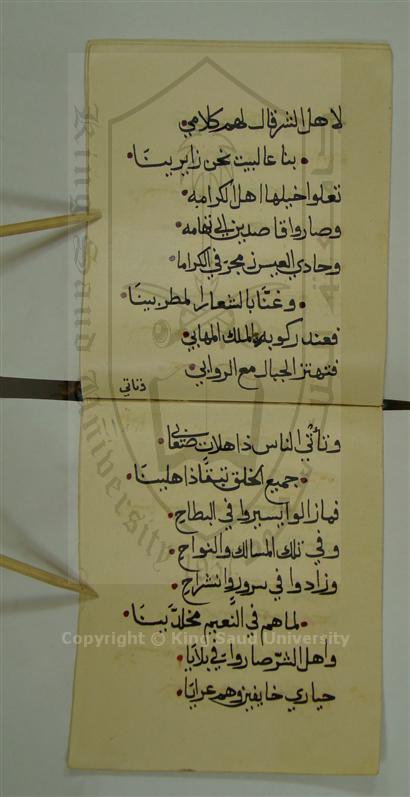 لاهل الشر قال لهم كلامي
بنا عالبيت نحن زايرينا
تعلوا خيلها اهل الكرامه
وصاروا قاصدين الي تهامه
وحادي العيس في الكراما
وغنا بالشعار المطربينا
فعند ركوبه الملك المهابي
فتهتز الجبال مع الروابي
وتأتي
وتأتي الناس ذاهلان
جميع الخلق تيقا ذاهلينا
فمازالوا يسيروا في البطاح
وفي تلك المسالك والنواح
وزادوا في سرور وانشراح
لماهم في النعيم مخلدينا
واهل الشر صاروا في بلايا
حياري خايفين وهم عرايا
Copyright © King Saud University
King Saud University